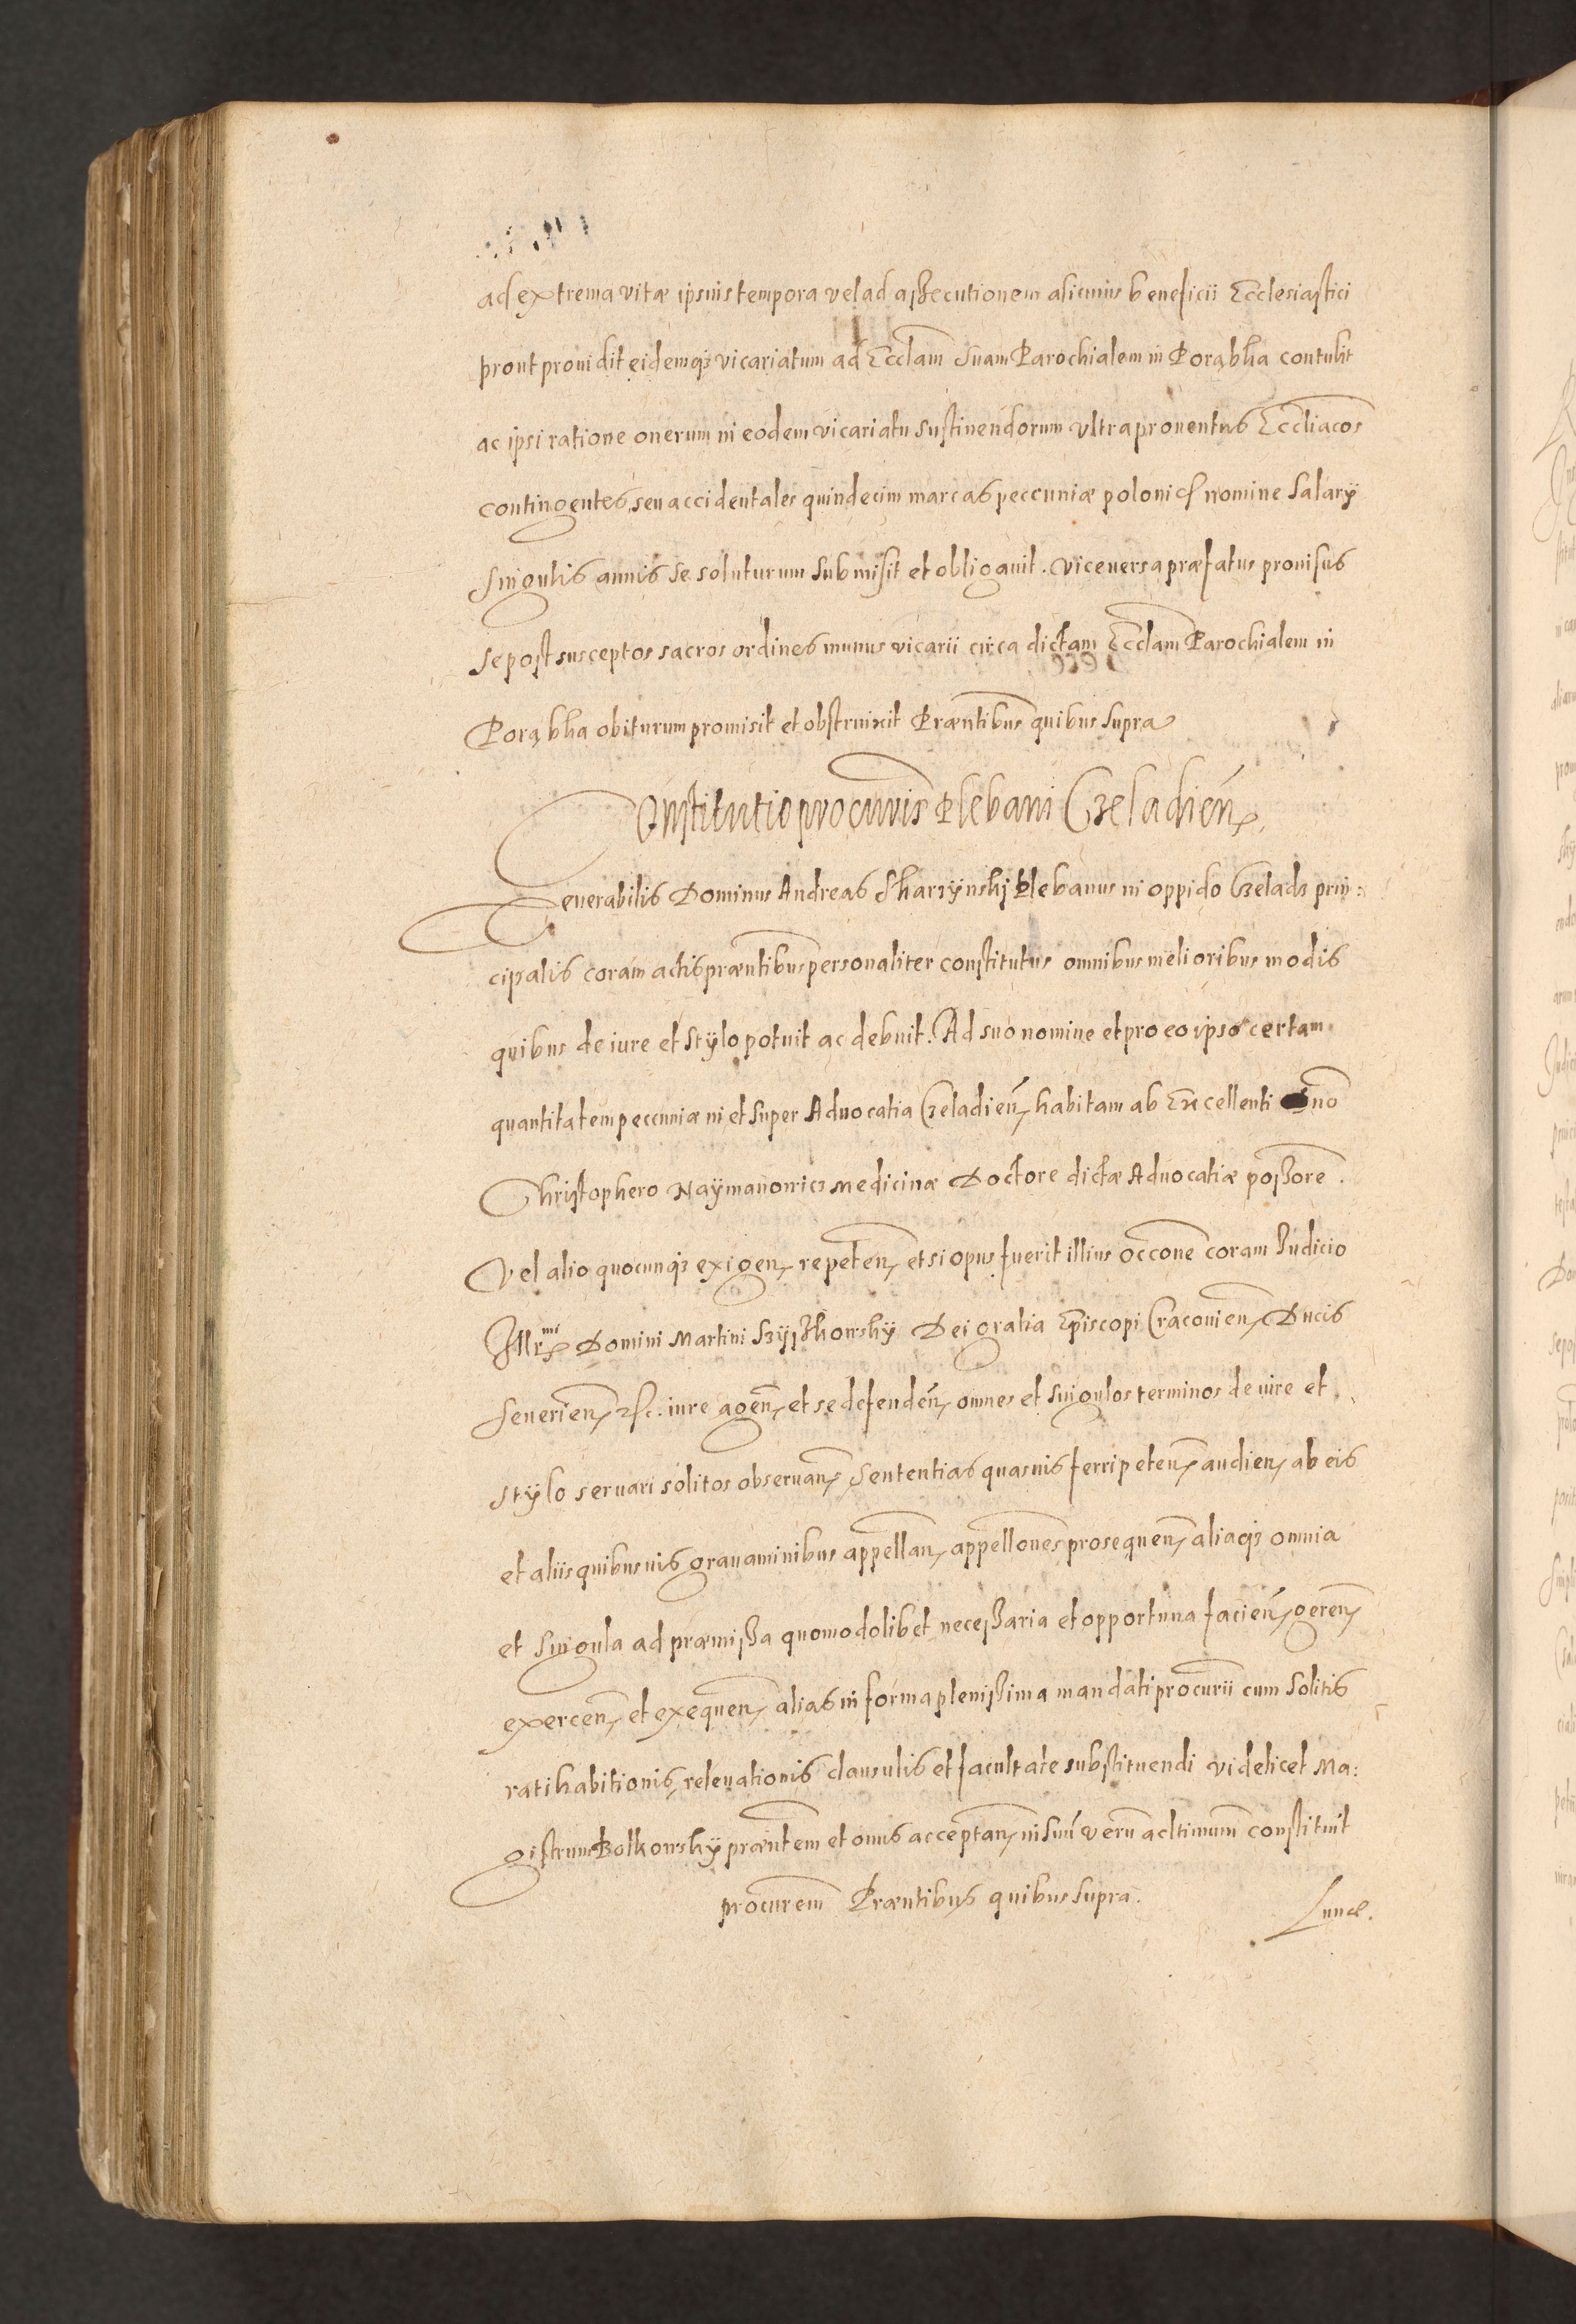 ad extrema vitæ ipsius tempora vel ad assecutionem alicuius beneficii Ecclesiastici
prout prouidit eidemqȝ vicariatum ad Ecclam suam Parochialem in Porąbka contulit
ac ipsi ratione onerum in eodem vicariatu sustinendorum vltra prouentus Eccliacos
contingentes, seu accidentales quindecim marcas peccuniæ polonic nomine salarÿ
singulis annis se soluturum submisit et obligauit. Viceuersa præfatus prouisus
se post susceptos sacros ordines munus vicarii circa dictam Ecclam Parochialem in
Porąbka obiturum promisit et obstrinxit Præntibus quibus supra
Constitutio procuris Plebani Czeladien
Venerabilis Dominus Andreas Skarzÿnskj Plebanus in oppido Czeladz prin:
cipalis coram actis præntibus personaliter constitutus omnibus melioribus modis
quibus de iure et stÿlo potuit ac debuit. Ad suo nomine et pro eo ipso certam
quantitatem peccuniæ in et super Aduocatia Czeladien, habitam ab Excellenti Dno
Christophero Naÿmanowicz Medicinæ Doctore dictæ Aduocatiæ possore.
Vel alio quocunqȝ exigen, repeten, et si opus fuerit illius occone coram Iudicio
Illrmi Domini Martini Szÿszkowskÿ Dei gratia Episcopi Cracouien, Ducis
Seuerien, etc. iure agen, et se defenden, omnes et singulos terminos de iure et
stÿlo seruari solitos obseruan, sententias quasuis ferri peten, audien, ab eis
et aliis quibusuis grauaminibus appellan, appellones prosequen, aliaqȝ omnia
et singula ad præmissa quomodolibet necessaria et opportuna facien, geren,
exercen, et exequen, alias in forma plenissima mandati procurii cum solitis
ratihabitionis, releuationis clausulis et facultate substituendi videlicet Ma:
gistrum Bolkowskÿ præntem et onus acceptan, in suu veru acltimum constituit
procurem Præntibus quibus supra.
Lunæ.